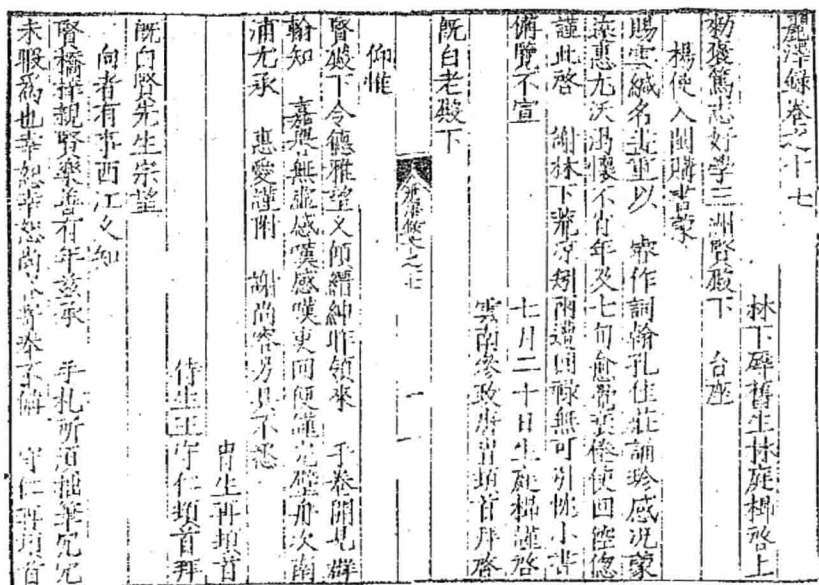 麗澤錄卷之十七
林下辱舊生林庭㭿啓上
勑褒篤志好學三洲賢殿下　台座
楊使入閩購書蒙
賜雲緘名畫重以　睿作詞翰孔佳莊誦珍感况蒙
遠惠尤沃渴懷不肖年及七旬愈覺衰倦使回倥偬
謹此啓　謝林下荒凉矧兩遭回祿無可引忱小書
俯覽不宣
七月二十日生庭㭿謹啓
雲南參政 習頓首拜啓
旣白老殿下
仰惟
賢殿下令德雅望久仰縉紳昨領來　手卷開見群
翰知　嘉譽無虛感嘆感嘆吏回便謹完璧舟次南
浦尤承　惠愛謹附　謝尚容乃具不悉
習生再頓首
侍生王守仁頓首拜
旣白賢先生宗望
向者有事西江久知
賢橋梓親賢樂善有年玆承　手札所須拙筆冗冗
未暇爲也幸恕幸恕尚 寄奉不備　守仁再頓首